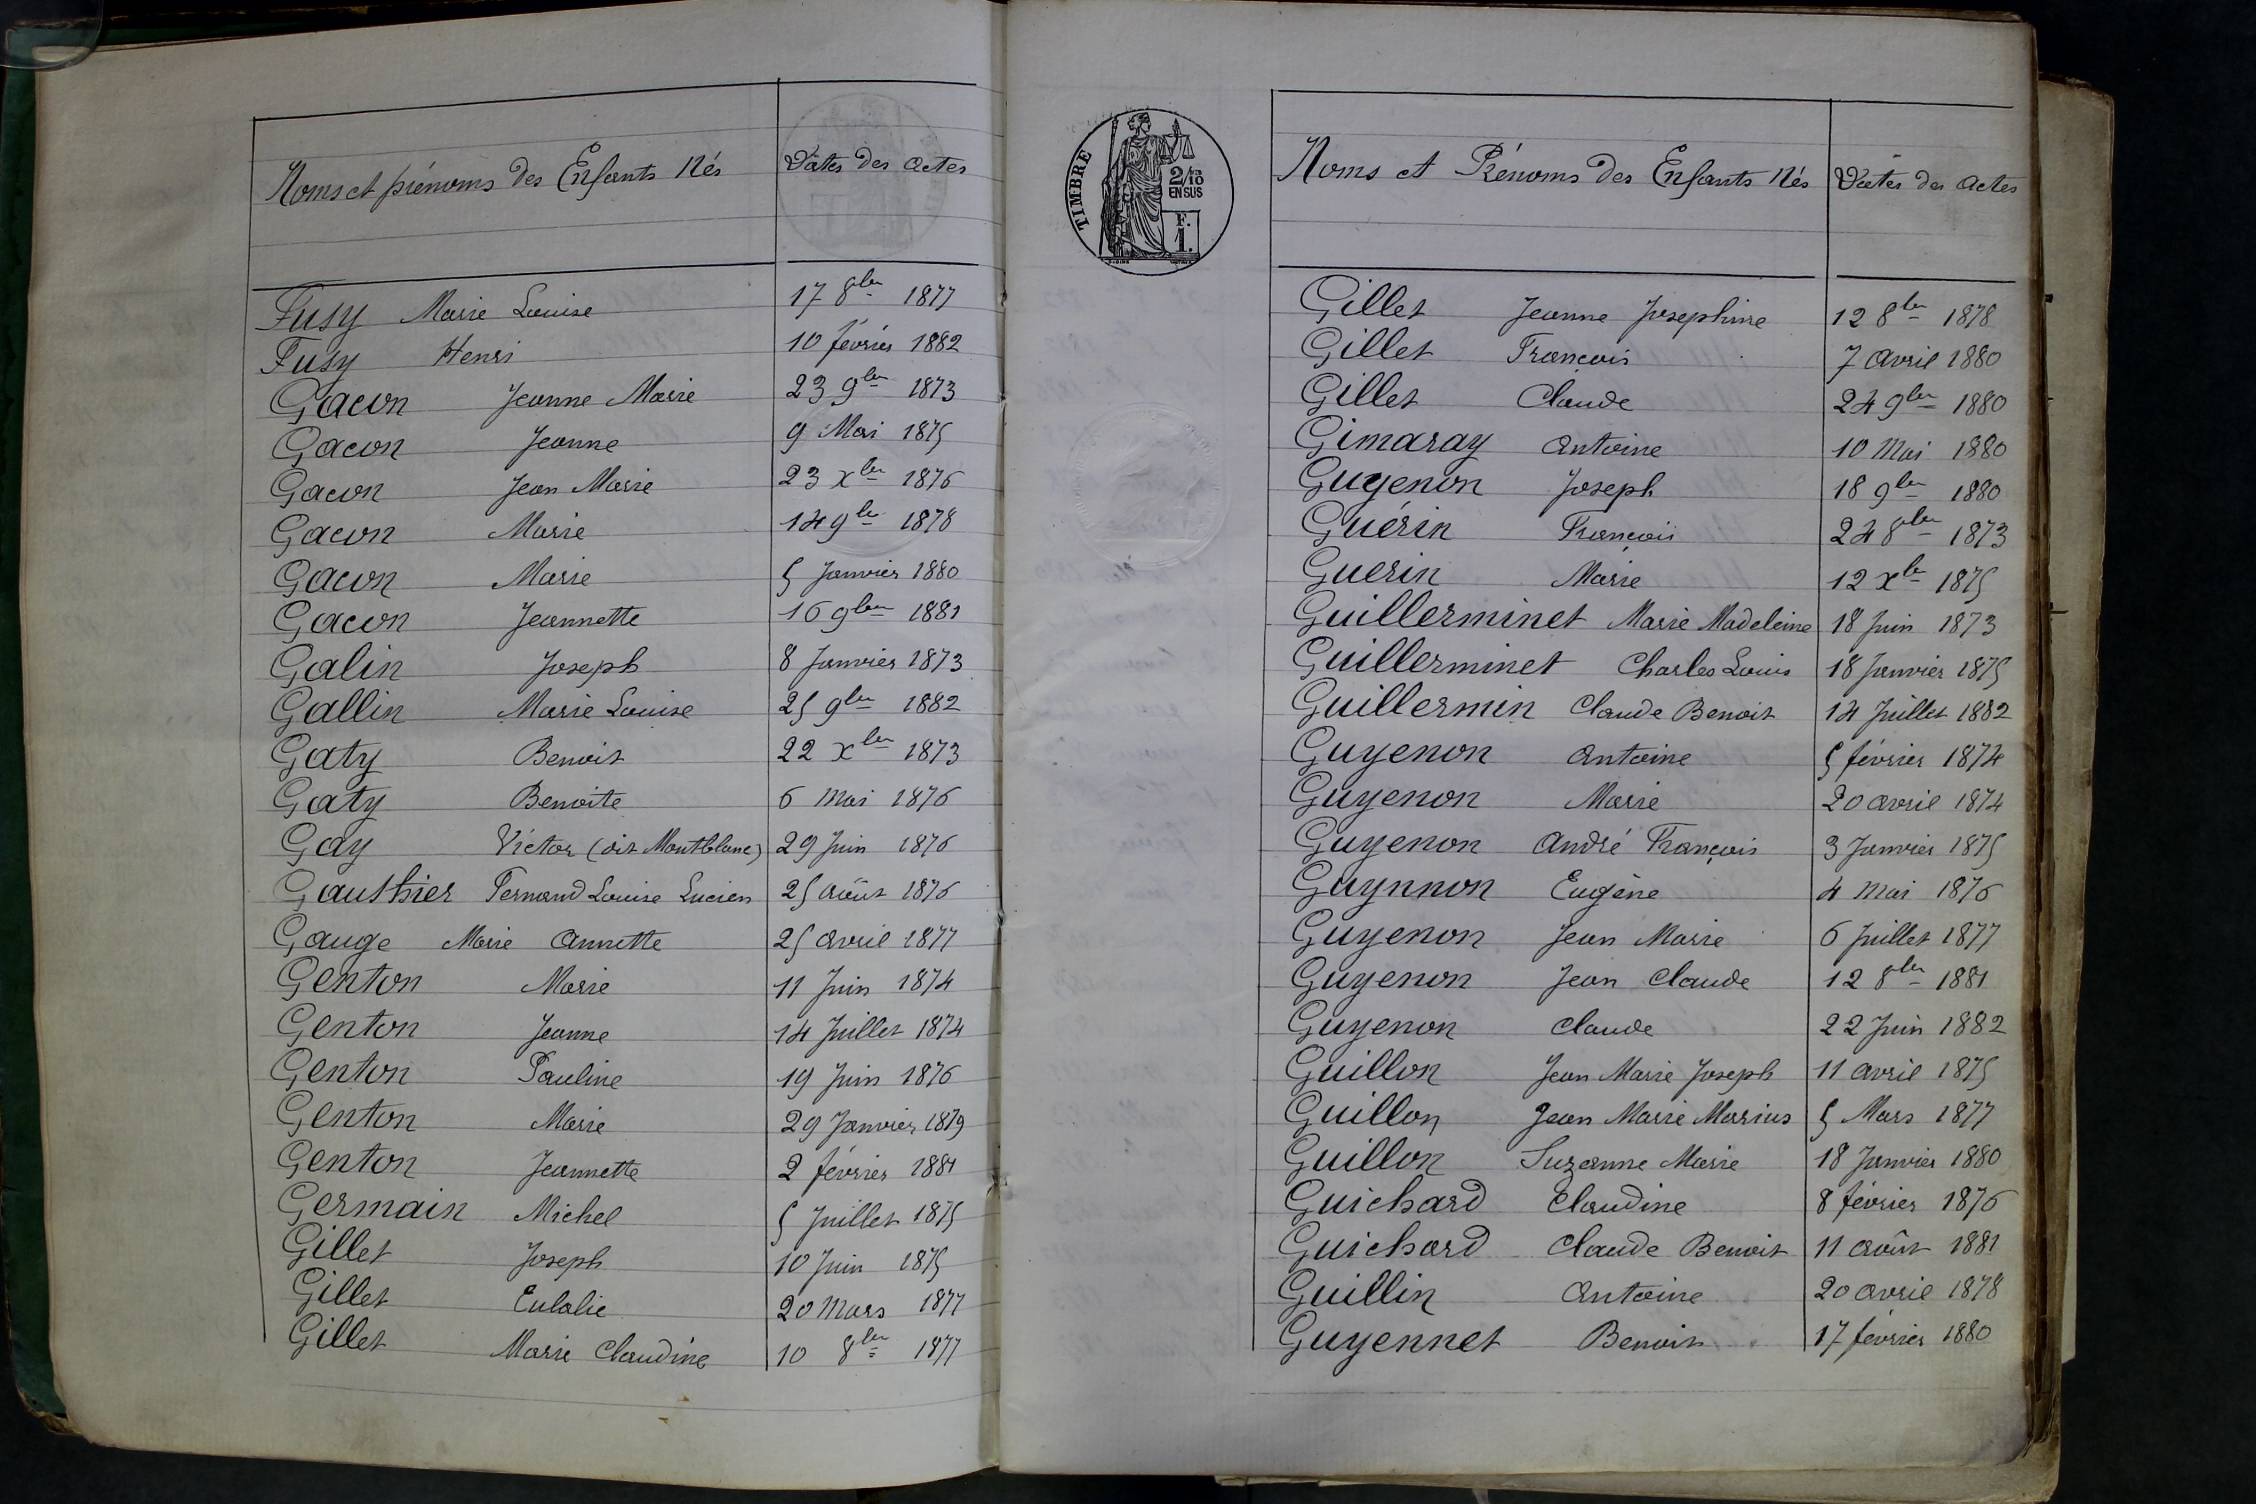 Noms et prénoms des Enfants Nés Dates des Actes
Fusy Marie Louise 17 8bre 1877
Fusy Henri 10 février 1882
Gacon Jeanne Marie 23 9bre 1873
Gacon Jeanne 9 Mai 1875
Gacon Jean Marie 23 xbre 1876
Gacon Marie 14 9bre 1878
Gacon Marie 5 Janvier 1880
Gacon Jeannette 16 9bre 1881
Galin Joseph 8 Janvier 1873
Gallin Marie Louise 25 9bre 1882
Gaty Benoit 22 xbre 1873
Gaty Benoite 6 Mai 1876
Gay Victor (dit Montblanc) 29 Juin 1876
Gauthier Fernand Louise Lucien 25 Août 1876
Gauge Marie Annette 25 Avril 1877
Genton Marie 11 Juin 1874
Genton Jeanne 14 Juillet 1874
Genton Pauline 19 Juin 1876
Genton Marie 29 Janvier 1879
Genton Jeannette 2 février 1881
Germain Michel 5 Juillet 1875
Gillet Joseph 10 Juin 1875
Gillet Eulalie 20 Mars 1877
Gillet Marie Claudine 10 8bre 1877
TIMBRE
2/10
EN SUS
F.
1.
Noms et Prénoms des Enfants Nés Dates des Actes
Gillet Jeanne Josephine 12 8bre 1878
Gillet François 7 Avril 1880
Gillet Claude 24 9bre 1880
Gimaray Antoine 10 Mai 1880
Guyenon Joseph 18 9bre 1880
Guérin François 24 8bre 1873
Guerin Marie 12 xbre 1875
Guillerminet Marie Madeleine 18 Juin 1873
Guillerminet Charles Louis 18 Janvier 1875
Guillermin Claude Benoit 14 Juillet 1882
Guyenon Antoine 5 février 1874
Guyenon Marie 20 Avril 1874
Guyenon André François 3 Janvier 1875
Guynnon Eugène 4 Mai 1876
Guyenon Jean Marie 6 Juillet 1877
Guyenon Jean Claude 12 8bre 1881
Guyenon Claude 22 Juin 1882
Guillon Jean Marie Joseph 11 Avril 1875
Guillon Jean Marie Marius 5 Mars 1877
Guillon Suzanne Marie 18 Janvier 1880
Guichard Claudine 8 février 1876
Guichard Claude Benoit 11 Août 1881
Guillin Antoine 20 Avril 1878
Guyennet Benoit 17 février 1880